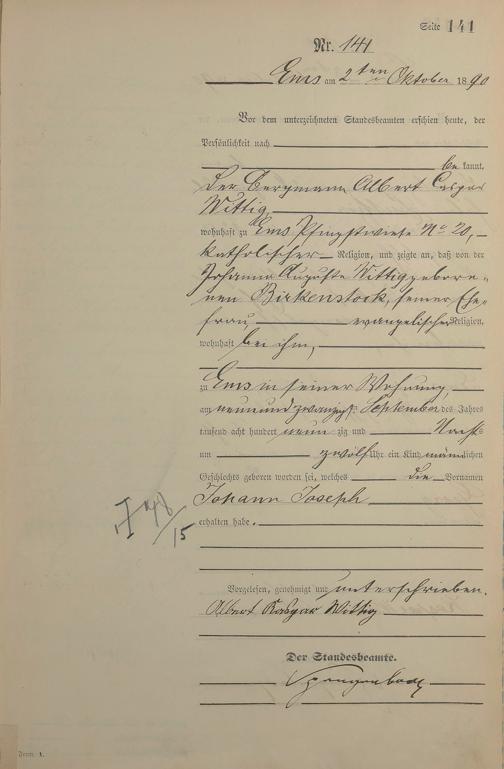 Seite 141
Nr. 141
Ems am 2ten Oktober 1890
Vor dem unterzeichneten Standesbeamten erschien heute, der
Persönlichkeit nach
bekannt,
der Bergmann Albert Caspar
Wittig
wohnhaft zu Ems Pfingstwiese No 20,
katholischer Religion, und zeigte an, daß von der
Johanna Auguste Wittig gebore-
nen Birkenstock, seiner Ehe-
frau, evangelischer Religion,
wohnhaft bei ihm,
zu Ems in seiner Wohnung
am neunundzwanzigst. September des Jahres
tausend acht hundert neunzig und Nachts
um zwölf Uhr ein Kind männlichen
Geschlechts geboren worden sei, welches die Vornamen
Johann Joseph
erhalten habe.
15
Vorgelesen, genehmigt und unterschrieben.
Albert Kaspar Wittig
Der Standesbeamte.
Form. A.